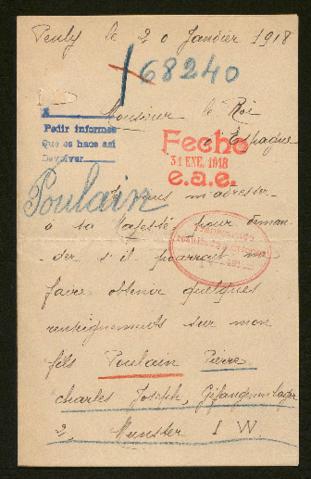 le 20 Janvier 1918
+68240
Monsieur le Roi
d'Espagne
Pedir informes
Que se hace asi
Devolver
Fecho
31 ENE. 1918
e.a.e.
Poulain
Je vous m'adresse
à sa Majesté pour deman-
der s'il pourrait me
faire obtenir quelques
renseignements sur mon
fils Poulain Pierre
charles Joseph, Gefangenenlager
2, Munster I W